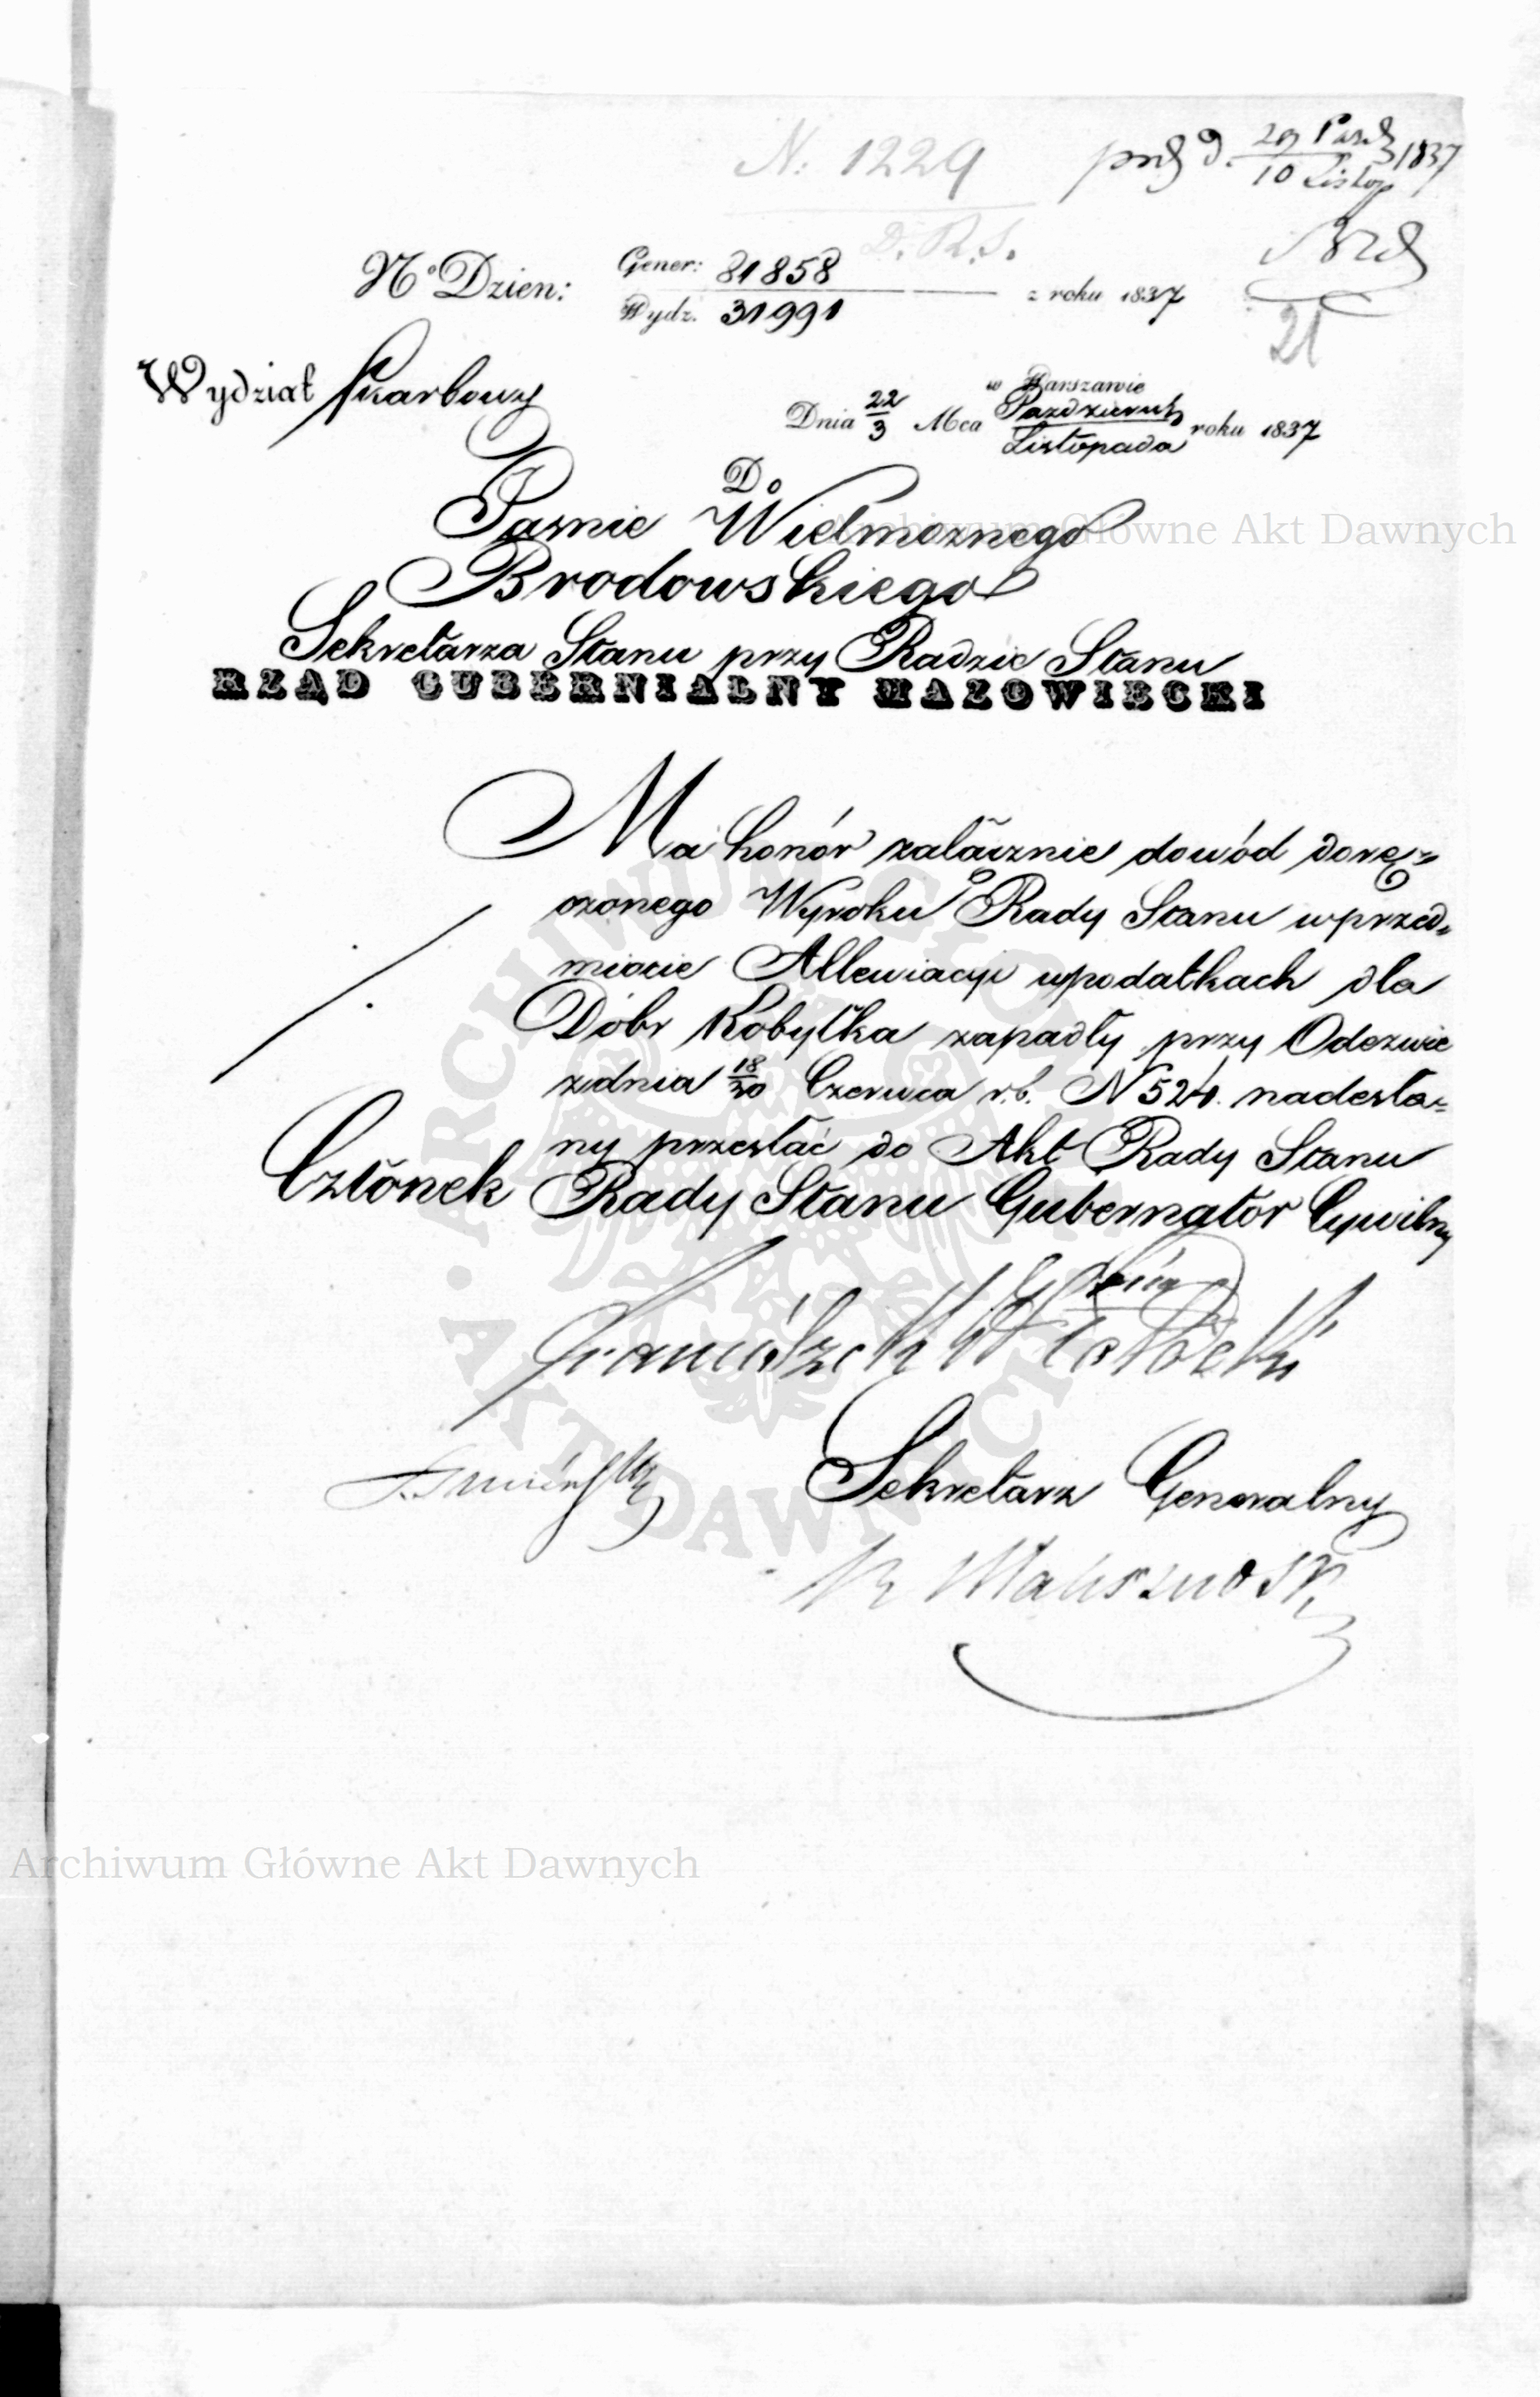 N. 1229
D. R. S.
29 Paźd
10 Listop 1837
21
No Dzien: Gener: 81858
Wydz. 31991 z roku 1837
Wydział Skarbowy
w Warszawie
Dnia 22/3 Mca Pazdziernik/Listopada roku 1837
Do
Jasnie Wielmoznego
Brodowskiego
Sekretarza Stanu przy Radzie Stanu
RZĄD GUBERNIALNY MAZOWIECKI
Ma honór załącznie dowód dorę=
czonego Wyroku Rady Stanu w przed=
miocie Allewiacyi w podatkach dla
Dóbr Kobyłka zapadły przy Odezwie
z dnia 18/30 Czerwca r.b. N 524. nadesła=
ny przesłać do Akt Rady Stanu
Członek Rady Stanu Gubernator Cywilny
Franciszek
Sekretarz Generalny
Archiwum Główne Akt Dawnych
Archiwum Główne Akt Dawnych
ARCHIWUM GŁÓWNE AKT DAWNYCH